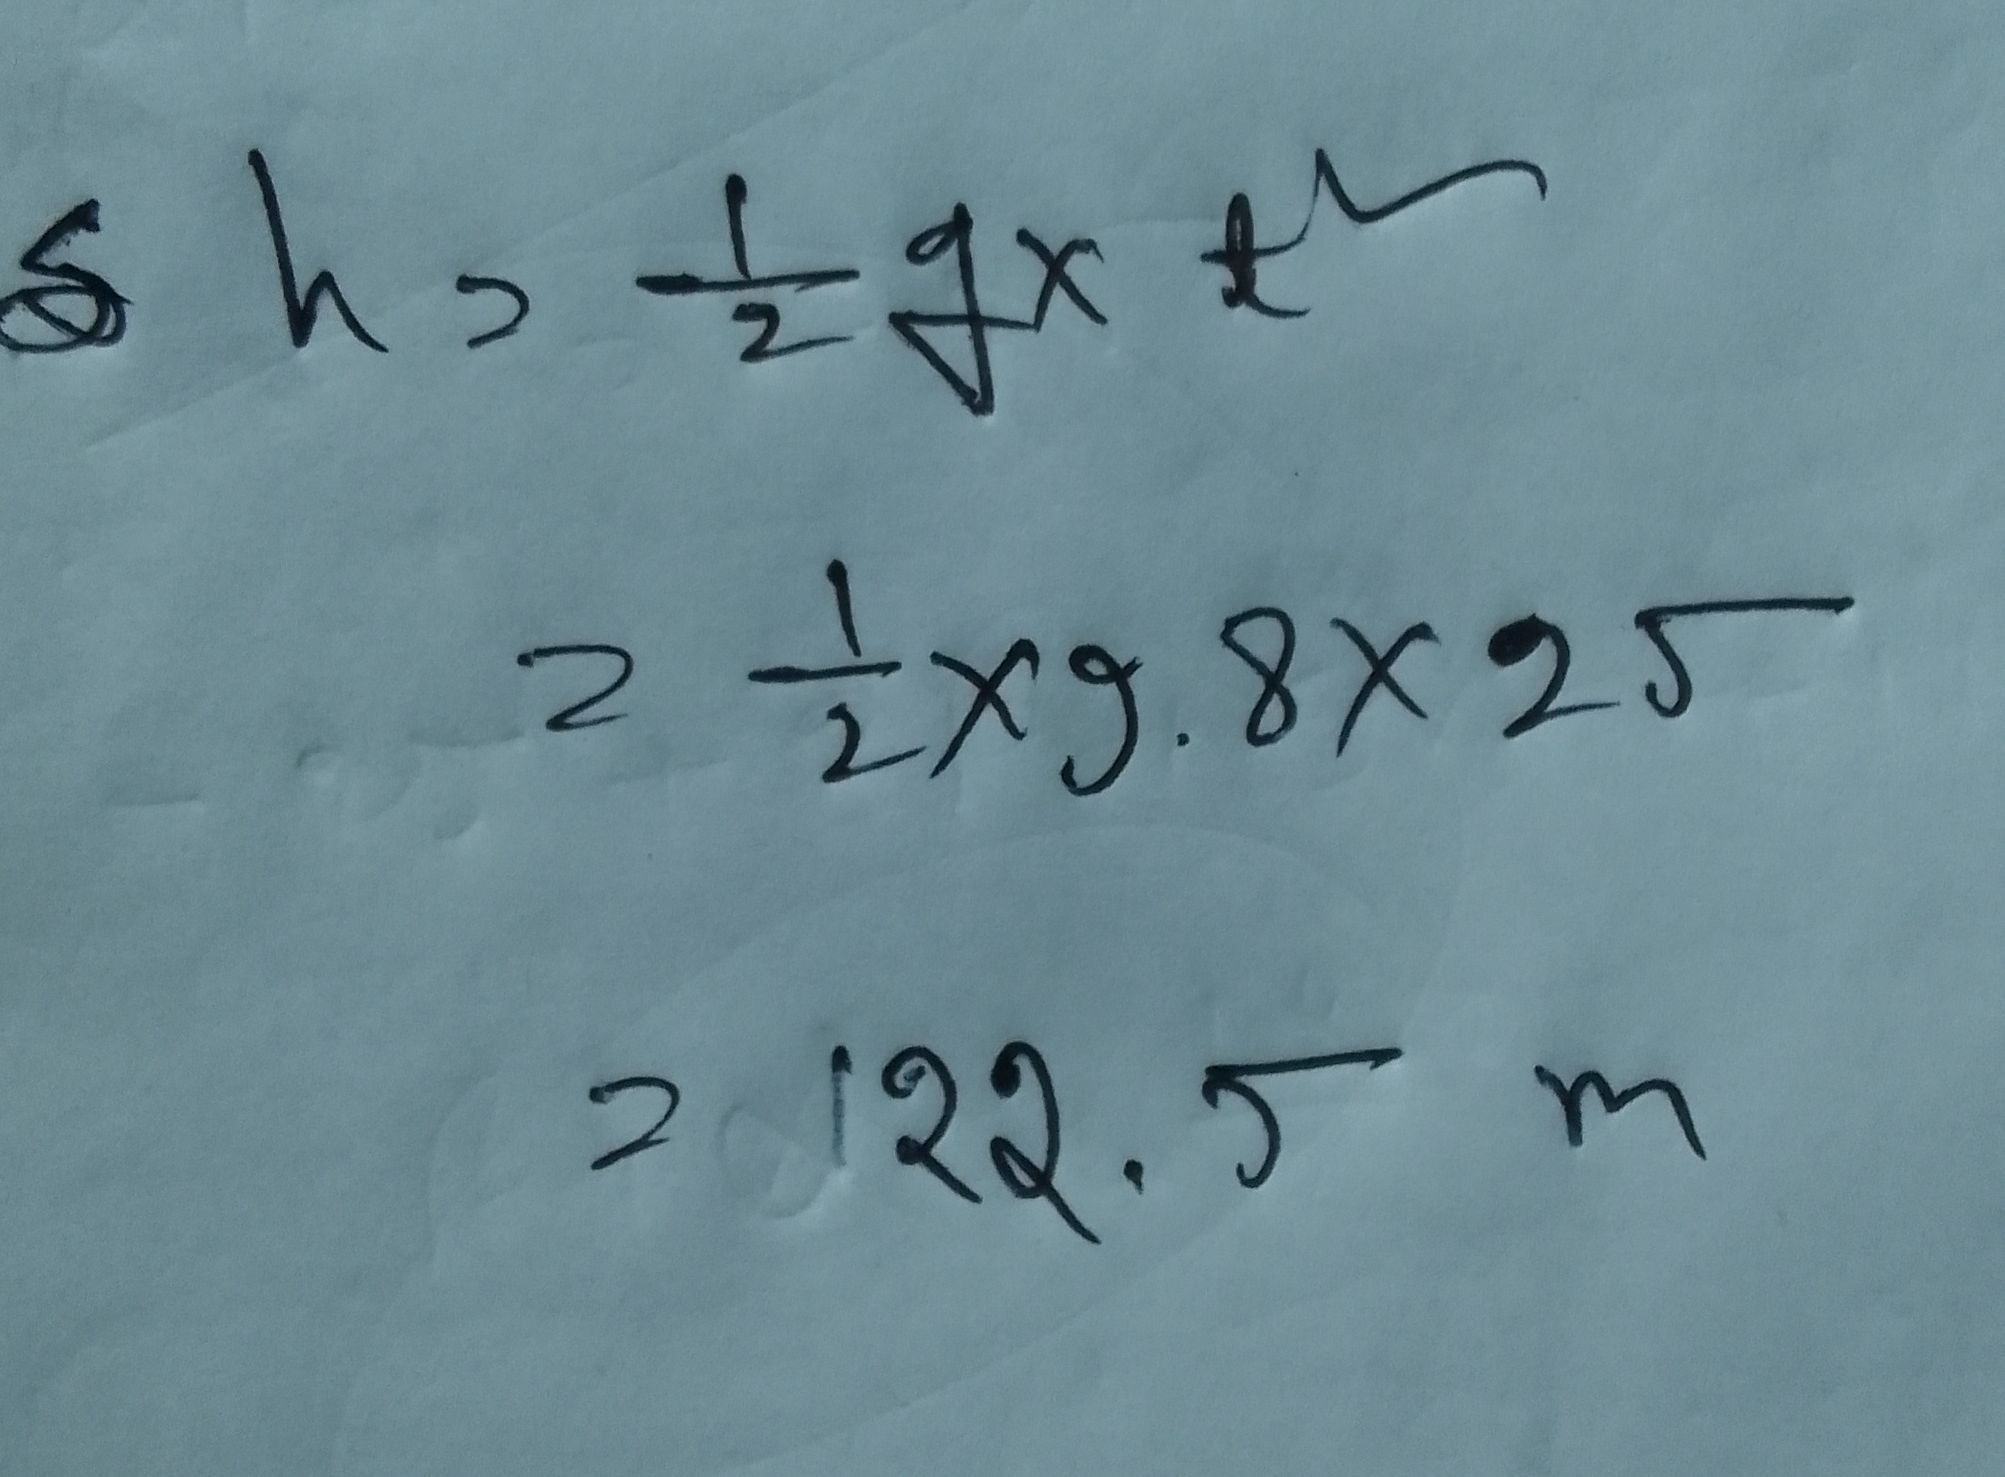 h = 1/2 g x t²
= 1/2 x 9.8 x 25
= 122.5 m